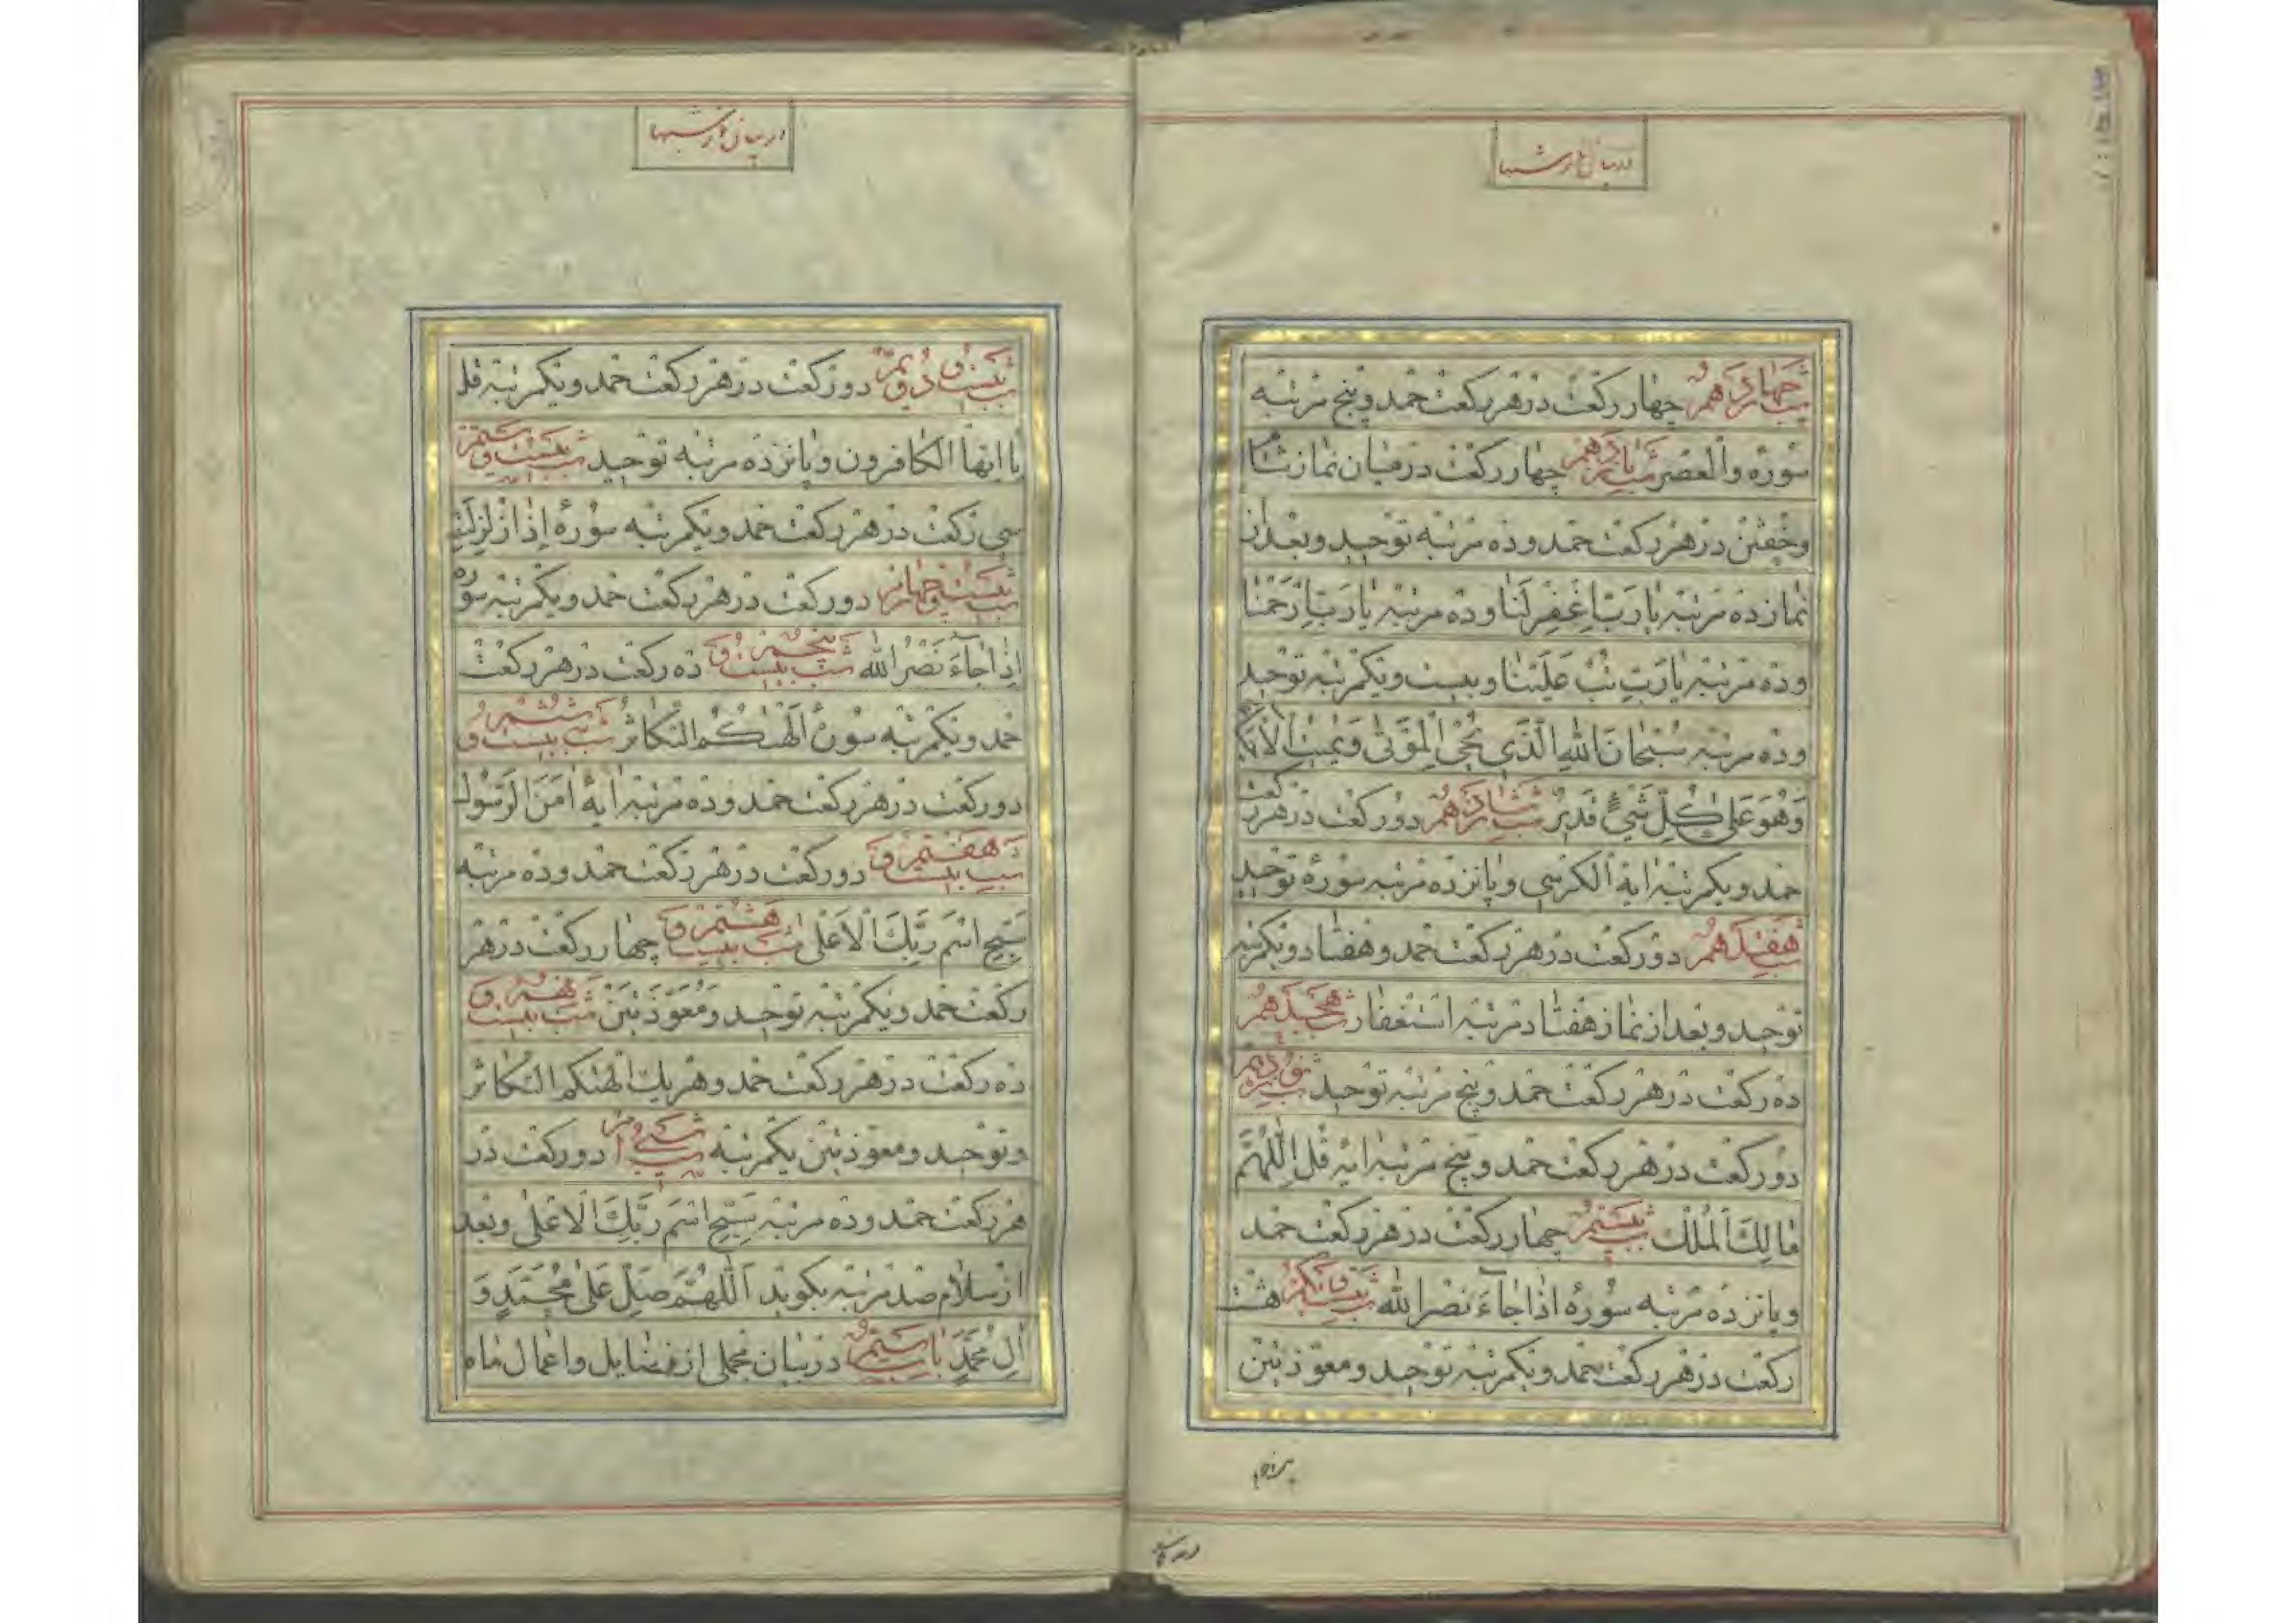 در بیان نماز شبها
شب چهاردهم چهار رکعت در هر رکعت حمد و پنج مرتبه
سوره والعصر شب پانزدهم چهار رکعت در میان نماز شام
و خفتن در هر رکعت حمد و ده مرتبه توحید و بعد از
نماز ده مرتبه یا رب اغفر لنا و ده مرتبه یا رب ارحمنا
و ده مرتبه یا رب تب علینا و بیست و یکمرتبه توحید
و ده مرتبه سبحان الله الذی یحیی الموتی و یمیت الاحیاء
وهو علی کل شیء قدیر شب شانزدهم دو رکعت در هر رکعت
حمد و یکمرتبه ایة الکرسی و پانزده مرتبه سورهٔ توحید
شب هفدهم دو رکعت در هر رکعت حمد و هفتاد و یکمرتبه
توحید و بعد از نماز هفتاد مرتبه استغفار شب هجدهم
ده رکعت در هر رکعت حمد و پنج مرتبه توحید شب نوزدهم
دو رکعت در هر رکعت حمد و پنج مرتبه ایه قل اللهم
مالک الملک شب بیستم چهار رکعت در هر رکعت حمد
و پانزده مرتبه سورهٔ اذا جاء نصر الله شب بیست و یکم هشت
رکعت در هر رکعت حمد و یکمرتبه توحید و معوذتین
در بیان نماز شبها
شب بیست و دویم دو رکعت در هر رکعت حمد و یکمرتبه قل
یا ایها الکافرون و پانزده مرتبه توحید شب بیست و سیم
سی رکعت در هر رکعت حمد و یکمرتبه سورهٔ إذا زلزلت
شب بیست و چهارم دو رکعت در هر رکعت حمد و یکمرتبه سوره
اذا جاء نصر الله شب بیست و پنجم ده رکعت در هر رکعت
حمد و یکمرتبه سوره الهٰکم التکاثر شب بیست و ششم
دو رکعت در هر رکعت حمد و ده مرتبه ایهٔ امن الرسول
شب بیست و هفتم دو رکعت در هر رکعت حمد و ده مرتبه
سبح اسم ربک الاعلی شب بیست و هشتم چهار رکعت در هر
رکعت حمد و یکمرتبه توحید و معوذتین شب بیست و نهم
ده رکعت در هر رکعت حمد و هر یک الهٰکم التکاثر
و توحید و معوذتین یکمرتبه شب سی ام دو رکعت در
هر رکعت حمد و ده مرتبه سبح اسم ربک الاعلی و بعد
از سلام صد مرتبه بکوید اللهم صل علی محمد و
ال محمد باب سیم در بیان مجملی از فضایل و اعمال ماه